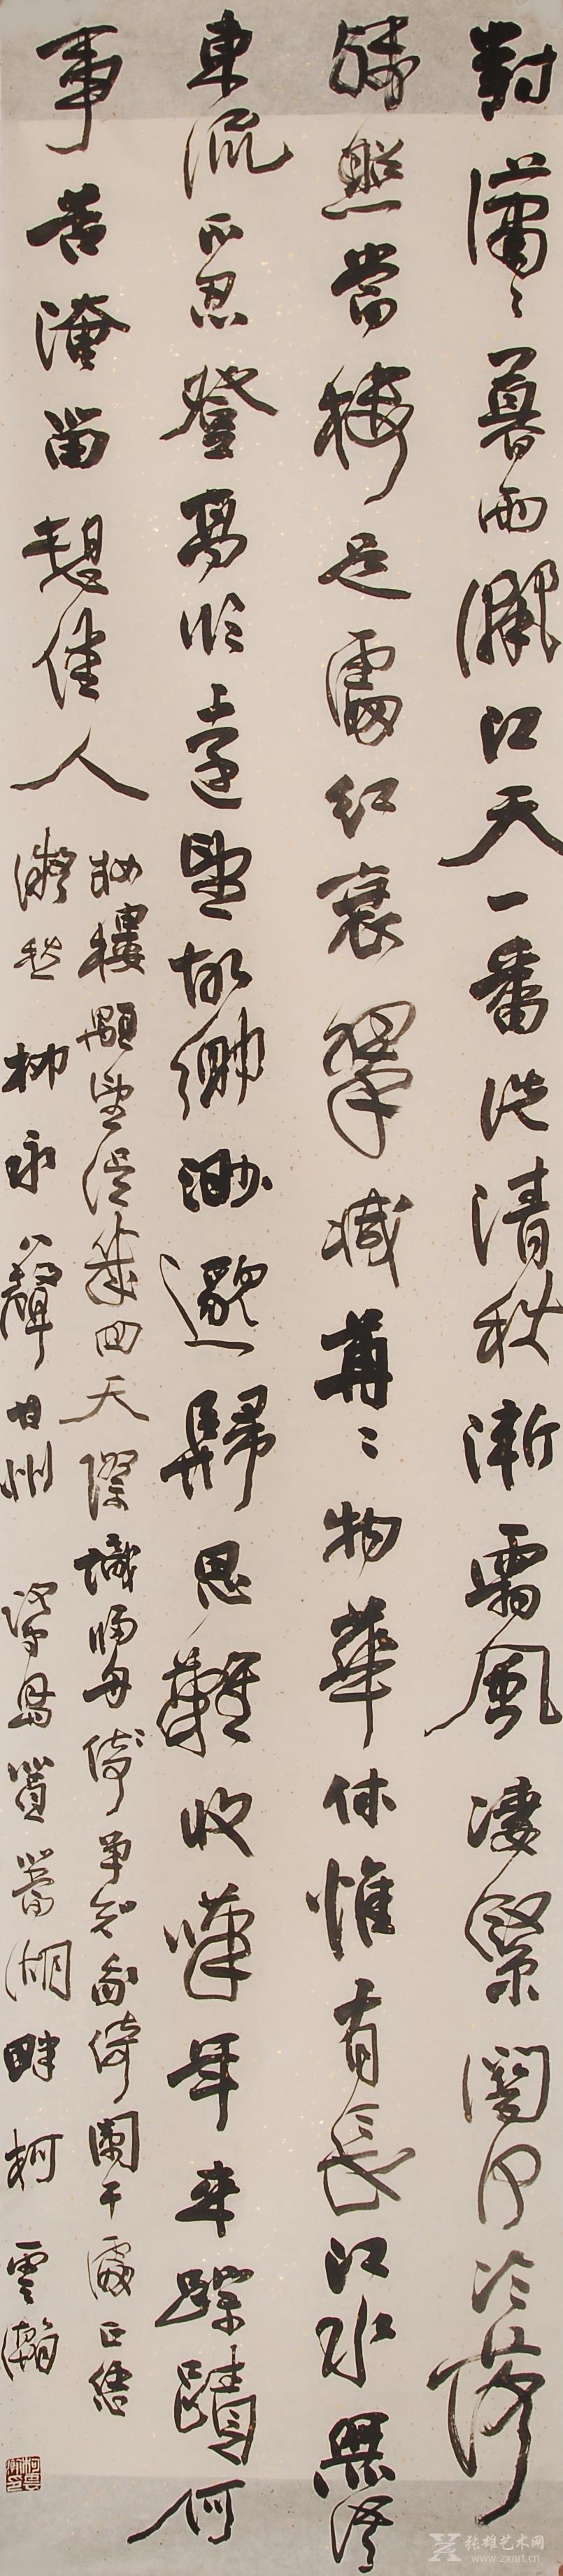 對瀟〻暮雨灑江天一番洗清秋漸霜風凄緊關河冷落
殘照當樓是處紅衰翠減苒〻物華休惟有長江水無語
東流不忍登高臨遠望故鄉渺邈歸思難收嘆年來蹤蹟何
事苦淹留想佳人
妝樓顒望誤幾回天際識歸舟倚爭知我倚闌干處正恁
凝愁 柳永八聲甘州 湖畔柯雲瀚
张雄艺术网
www.zxart.cn